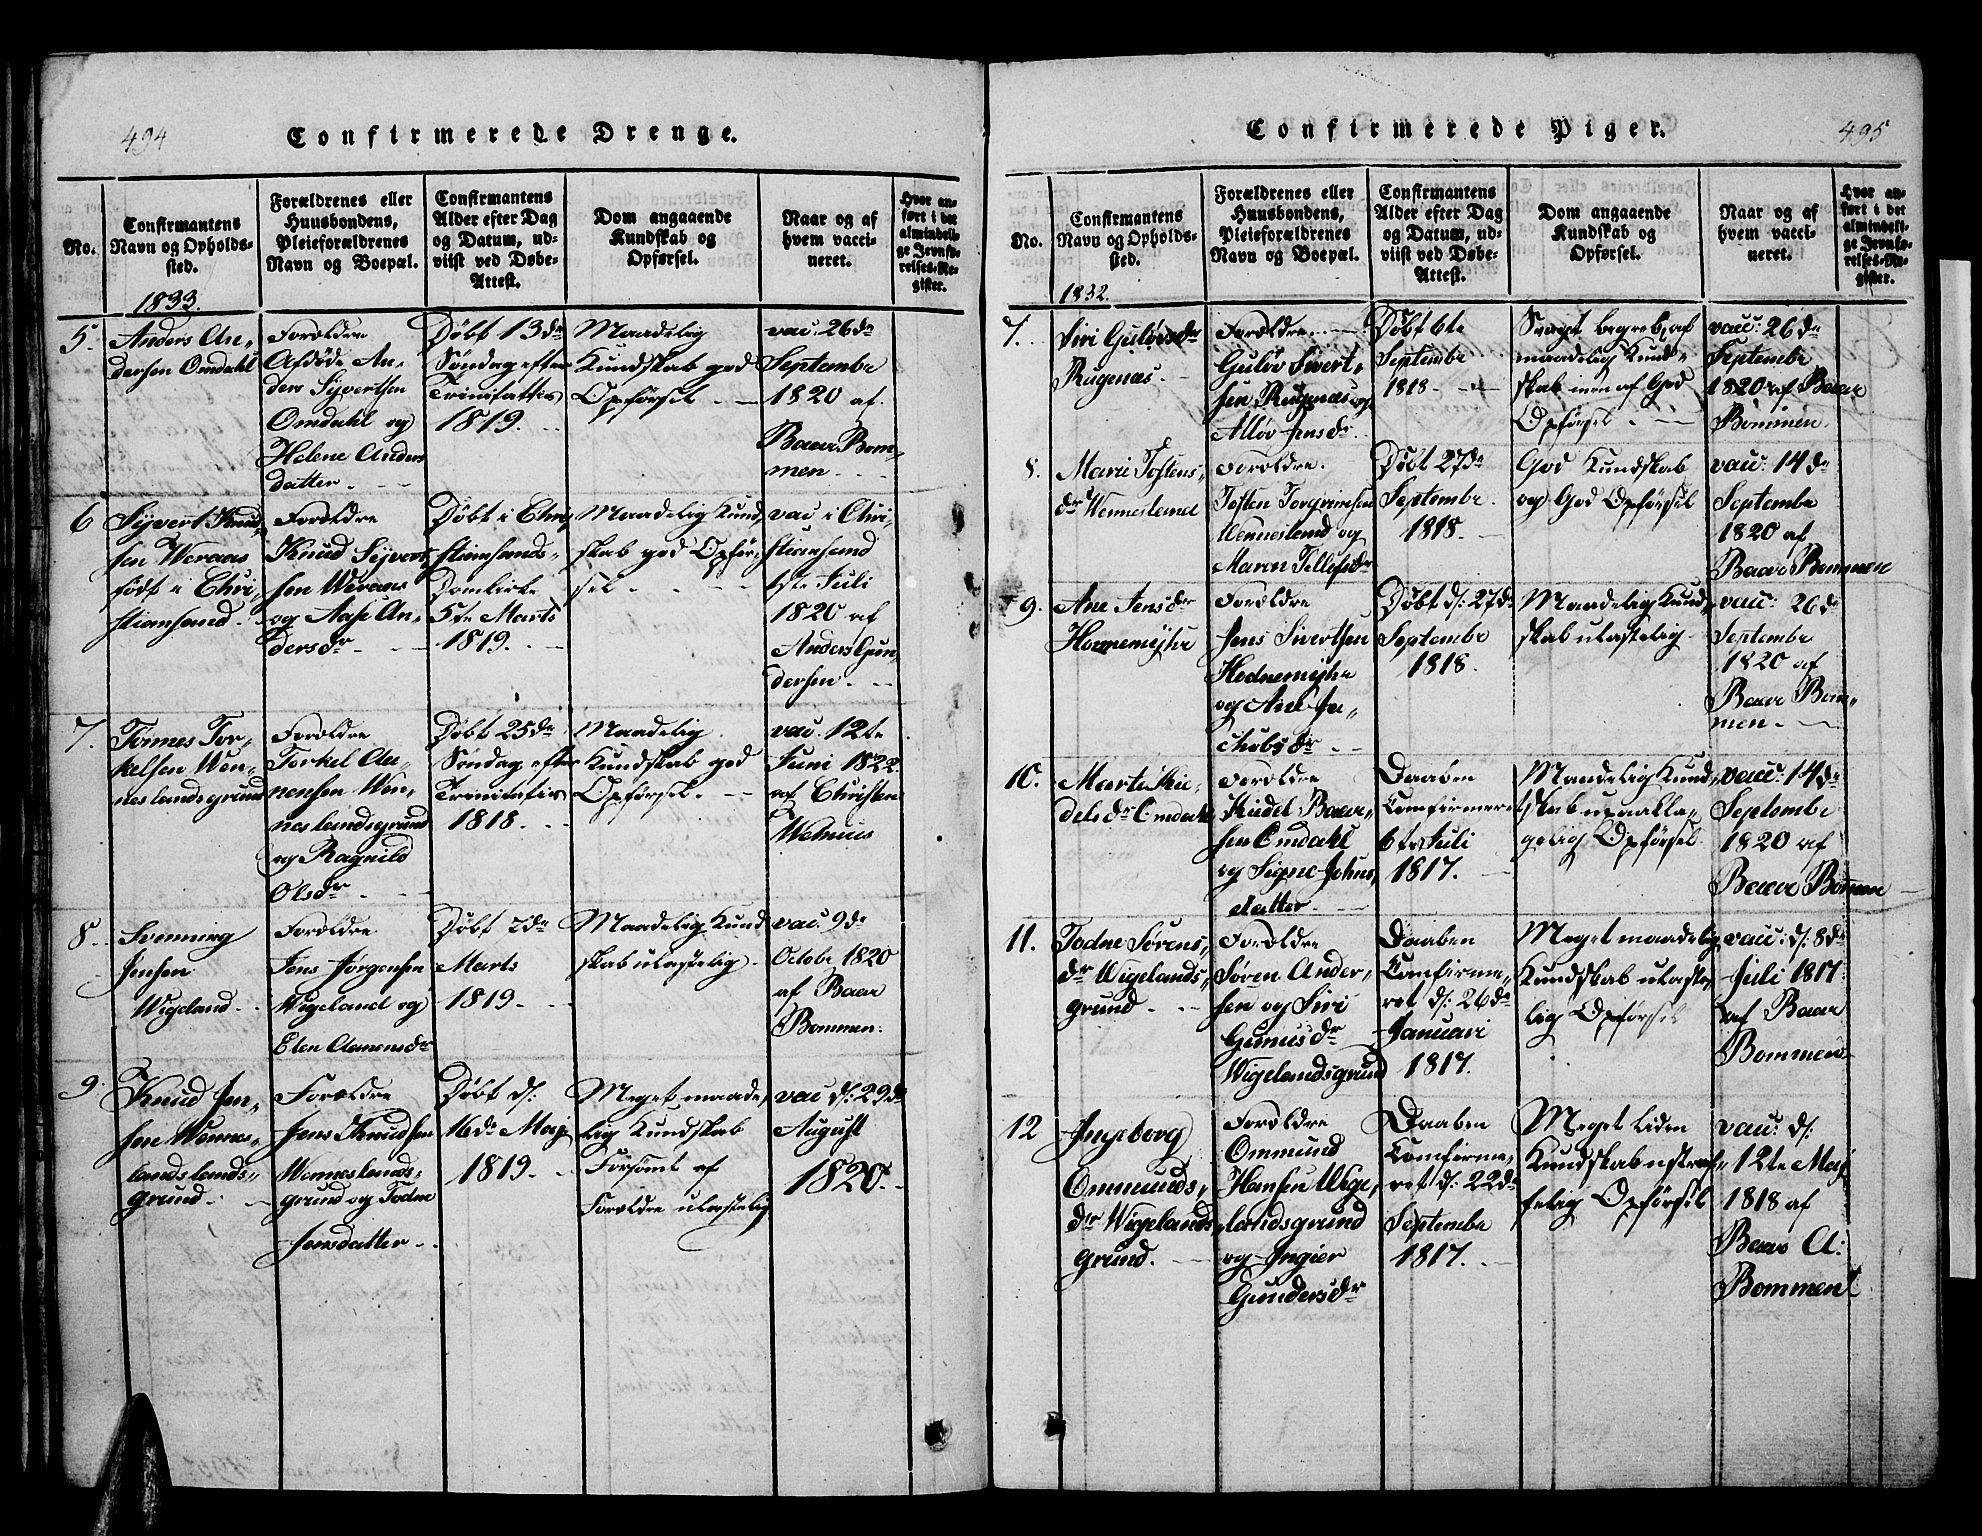 494
Confirmerede Drenge.
No.
Confirmantens
Navn og Opholds-
sted.
Forældrenes eller
Huusbondens,
Pleieforældrenes
Navn og Boepæl.
Confirmantens
Alder efter Dag
og Datum, ud-
viist ved Døbe-
Attest.
Dom angaaende
Kundskab og
Opførsel.
Naar og af
hvem vacci-
neret.
Hvor an-
ført i det
almindeli-
ge Jevnfø-
relses-Re-
gister.
1833.
5.
Anders An-
dersen Omdahl
Foreldre
Afdøde An-
ders Syvertsen
Omdahl og
Helene Anders
datter.
Døbt 13de
Søndag efter
Trinitattis
1819.
Maadelig
Kundskab god
Opførsel.
vac. 26de
Septembr
1820 af
Baar Bom-
men.
6
Syvert Knud-
sen Weraas
født i Chri-
stiansand.
Foreldre
Knud Syvert-
sen Weraas
og Aase An-
dersdr
Døbt i Chri-
stiansands-
Domkirke
5te Marts
1819.
Maadelig Kund-
skab god Opfør-
sel.
vac i Chri-
stiansand
1ste Juli
1820 af
Anders Gun-
dersen.
7.
Tønnes Tor-
kelsen Wen-
neslandsgrund
Foreldre
Torkel An-
nensen Wen-
neslandsgrund
og Ragnild
Olsdr
Døbt 25de
Søndag efter
Trinitatis
1818.
Maadelig
Kundskab god
Opførsel.
vac. 12te
Juni 1822.
af Christen
Wehuus
8.
Svenning
Jensen
Wigeland.
Foreldre
Jens Jørgensen
Wigeland og
Elen Aanensdr
Døbt 2de
Marts
1819.
Maadelig Kund
skab ulastelig.
vac. 9de
Octobr 1820
af Baar
Bommen.
9.
Knud Jen-
sen Wennes-
landslands-
grund.
Foreldre
Jens Knudsen
Wenneslands-
grund og Todne
Jensdatter.
Døbt d:
16de Maj
1819.
Meget maade-
lig Kundskab
Forsømt af
Foreldre ulastelig
vac d: 29de
August
1820.
495
Confirmerede Piger.
No.
Confirmantens
Navn og Opholds-
sted.
Forældrenes eller
Huusbondens,
Pleieforældrenes
Navn og Boepæl.
Confirmantens
Alder efter Dag
og Datum, ud-
viist ved Døbe-
Attest.
Dom angaaende
Kundskab og
Opførsel.
Naar og af
hvem vacci-
neret.
Hvor an-
ført i det
almindeli-
ge Jevnfø-
relses-Re-
gister.
1832.
7.
Siri Guløvsdr
Rugenæs.
Foreldre
Guløv Sivert-
sen Rugenæs og
Alløv Jensdr.
Døbt 6te
Septembr
1818.
Svagt begreb, af
maadelig Kund-
skab men af God
Opførsel.
vac: 26de
Septembr
1820 af Baar
Bommen.
8.
Marie Tostens-
dr Wennesland
Foreldre.
Tosten Torgrimsen
Wennesland og
Maren Tellefsdr
Døbt 27de
Septembr
1818.
God Kundskab
og God Opførsel
vac: 14de
Septembr
1820 af
Baar Bommen
9.
Ane Jensdr
Honnemyhr
Foreldre
Jens Sivertsen
Hodnemyhr
og Ane Ja-
chobsdr
Døbt d: 27de
Septembr
1818.
Maadelig Kund-
skab ulastelig
vac: 26de
Septembr
1820 af
Baar Bom-
men.
10.
Marte Kie-
delsdr Omdahl
Foreldre
Kiedel Baar-
sen Omdahl
og Signe Johns-
datter.
Daaben
Comfirmeret
6te Juli
1817.
Maadelig Kund-
skab upaakla-
gelig Opførsel
vac: 14de
Septembr
1820 af
Baar Bommen
11.
Todne Sørens-
dr Wigelands-
grund.
Foreldre
Søren Ander-
sen og Siri
Gunusdr
Wigelandsgrund
Daaben
Comfirme-
ret d: 26de
Januari
1817.
Meget maadelig
Kundskab ulaste-
lig Opførsel
vac: d: 8de
Juli 1817
af Baar
Bommen
12
Ingeborg
Ommunds-
dr Wigelands-
grund.
Foreldre
Ommund
Hansen Wige-
landsgrund
og Ingier
Gundersdr
Daaben
Comfirme-
ret d: 22de
Septembr
1817.
Meget liden
Kundskab ustraf-
felig Opførsel
vac: d:
12te Maj
1818 af
Baar A:
Bommen